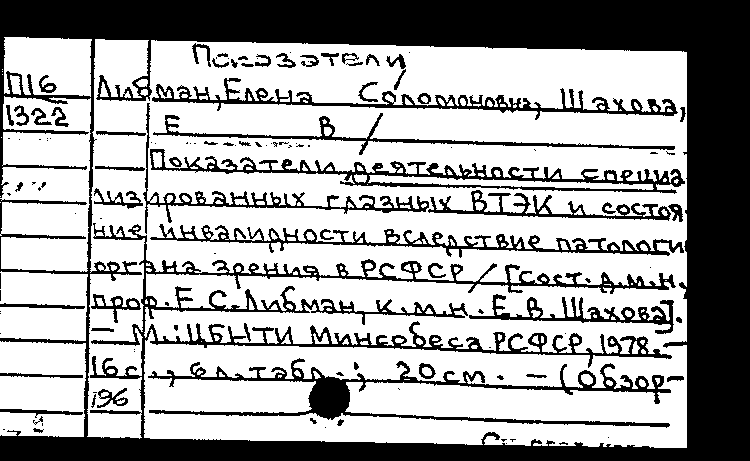 Показатели
П16 Либман, Елена Соломоновна, Шахова,
1322 Е В
Показатели деятельности специа
лизированных глазных ВТЭК и состоя-
ние инвалидности вследствие патологи
органа зрения в РСФСР / [сост. д.м.н.,
проф. Е.С.Либман, к.м.н. Е.В.Шахова].
— М.: ЦБНТИ Минсобеса РСФСР, 1978. —
16с., 6л.табл.; 20см. — (Обзор-
196